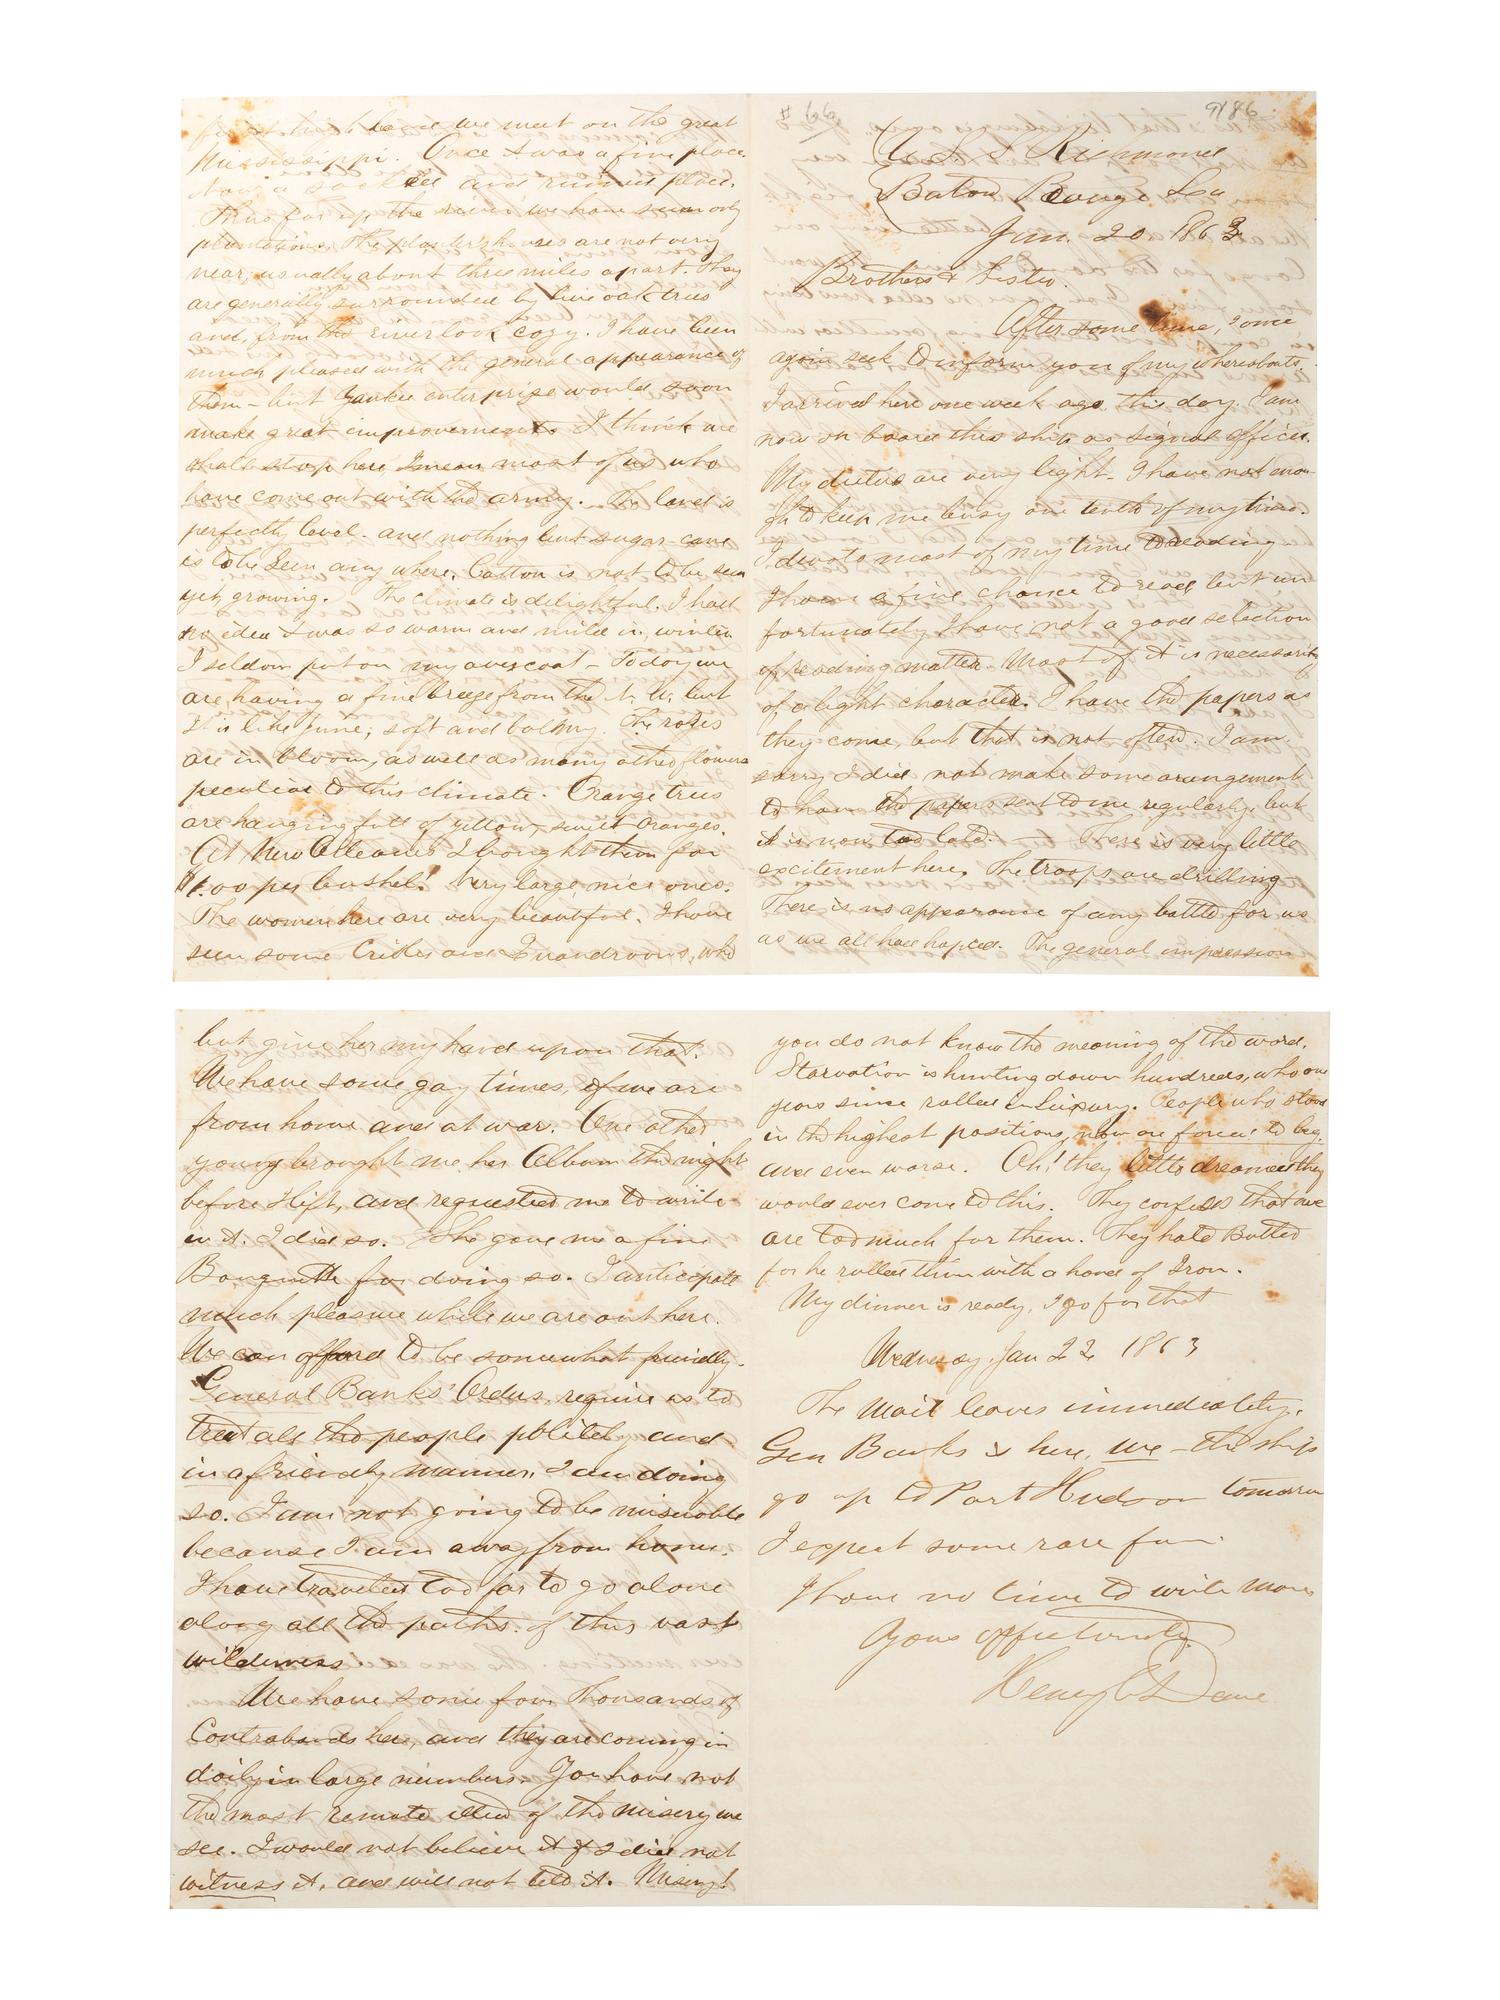 # 66
9186
U. S. S. Richmond
Baton Rouge Lou
Jan. 20 1863
Brothers & Sister.
After some time, I once
again seek to inform you of my whereabouts.
I arrived here one week ago this day. I am
now on board this ship as signal officer.
My duties are very light. I have not enou-
gh to keep me busy one tenth of my time.
I devote most of my time to reading
I have a fine chance to read but un
fortunately I have not a good selection
of reading matter. Most of it is necessarily
of a light character. I have the papers as
they come, but that is not often. I am
sorry I did not make some arrangement
to have the papers sent to me regularly, but
it is now too late. — There is very little
excitement here. The troops are drilling
There is no appearance of any battle for us
as we all had hoped. The general impression
first high land we meet on the great
Mississippi. Once it was a fine place.
Now a sacked and ruined place.
Thus far up the river we have seen only
plantations. The planters houses are not very
near, usually about three miles apart. They
are generally surrounded by live oak trees
and, from the river look cozy. I have been
much pleased with the general appearance of
them – but Yankee enterprise would soon
make great improvements. I think we
shall stop here I mean most of us who
have come out with the army. The land is
perfectly level. and nothing but sugar-cane
is to be seen any where. Cotton is not to be seen
yet growing. The climate is delightful. I had
no idea it was so warm and mild in winter
I seldom put on my overcoat – Today we
are having a fine breeze from the N. W. but
it is like June, soft and balmy. The roses
are in bloom, as well as many other flowers
peculiar to this climate. Orange trees
are hanging full of yellow, sweet oranges.
At New Orleans I bought them for
$1.00 per bushel! Very large, nice ones.
The women here are very beautiful. I have
seen some Creoles and Quadroons, who
but give her my hand upon that.
We have some gay times, if we are
from home and at war. One other
young brought me her Album the night
before I left, and requested me to write
in it. I did so. She gave me a fine
Bouquette for doing so. I anticipate
much pleasure while we are out here.
We can afford to be somewhat friendly.
General Banks' Orders require us to
treat all the people politely and
in a friendly manner. I am doing
so. I am not going to be miserable
because I am away from home.
I have traveled too far to go alone
along all the paths of this vast
wilderness
We have some four Thousands of
Contrabands here, and they are coming in
daily in large numbers. You have not
the most remote idea of the misery we
see. I would not believe it if I did not
witness it. and will not tell it. Misery!
you do not know the meaning of the word.
Starvation is hunting down hundreds, who one
years since rolled in Luxury. People who stood
in the highest positions, now are forced to beg,
and even worse. Oh! they little dreamed they
would ever come to this. They confess that we
are too much for them. They hate Butler
for he rulled them with a hand of Iron.
My dinner is ready, I go for that
Wednesday, Jan 22, 1863
The Mail leaves immediately.
Gen Banks is here, we – the ships
go up to Port Hudson tomorrow
I expect some rare fun.
I have no time to write more
Yours affectionately
Henry C Dane